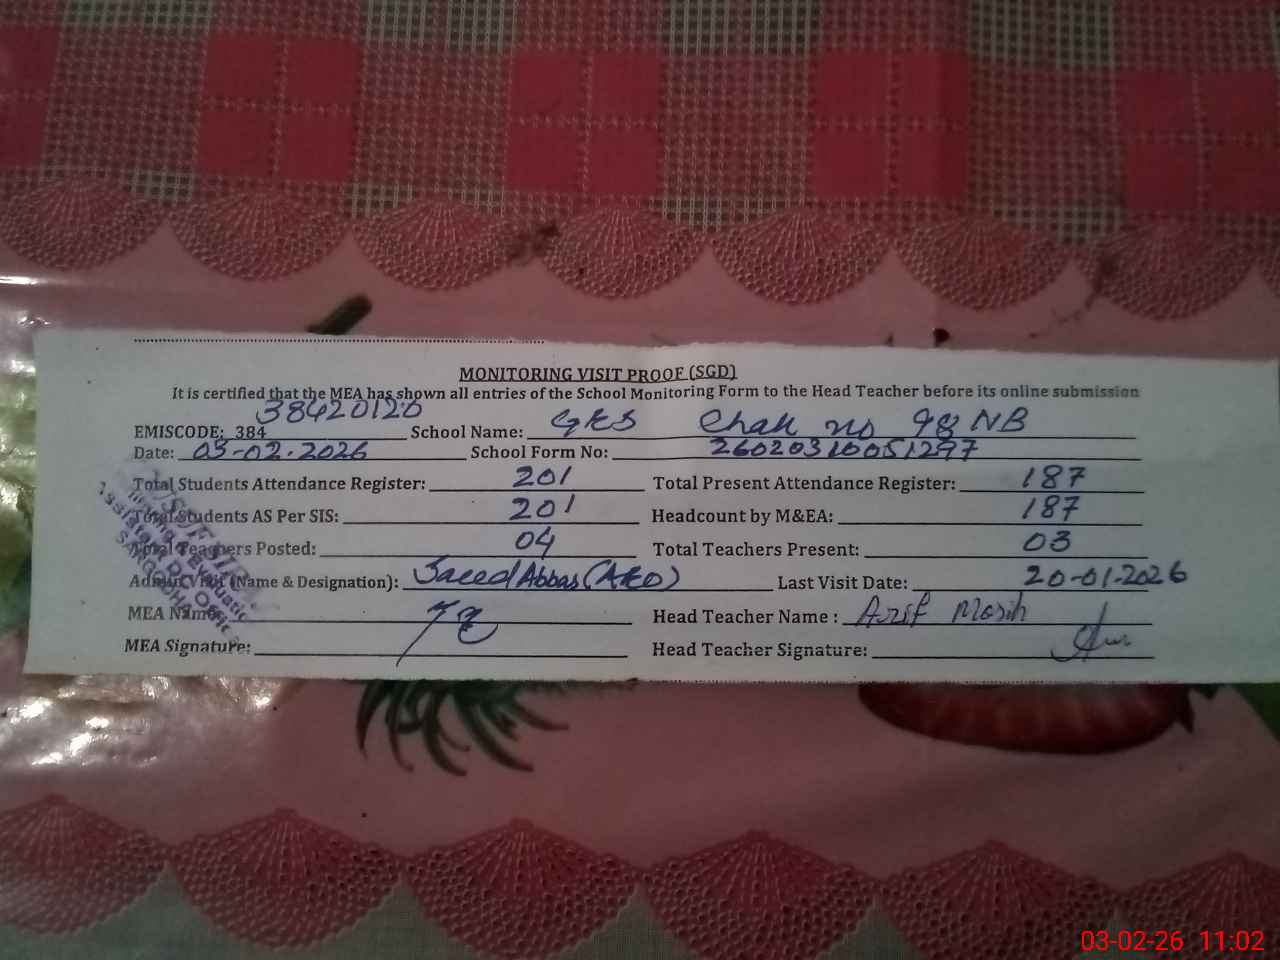 MONITORING VISIT PROOF (SGD)
It is certified that the MEA has shown all entries of the School Monitoring Form to the Head Teacher before its online submission
38420120
EMISCODE: 384 School Name: GES Chak no 98 NB
Date: 03-02-2026 School Form No: 26020310051297
Total Students Attendance Register: 201 Total Present Attendance Register: 187
Total Students AS Per SIS: 201 Headcount by M&EA: 187
Total Teachers Posted: 04 Total Teachers Present: 03
Admin Visit (Name & Designation): Saeed Abbas (AEO) Last Visit Date: 20-01-2026
MEA Name: Head Teacher Name : Arif Masih
MEA Signature: Head Teacher Signature:
03-02-26 11:02